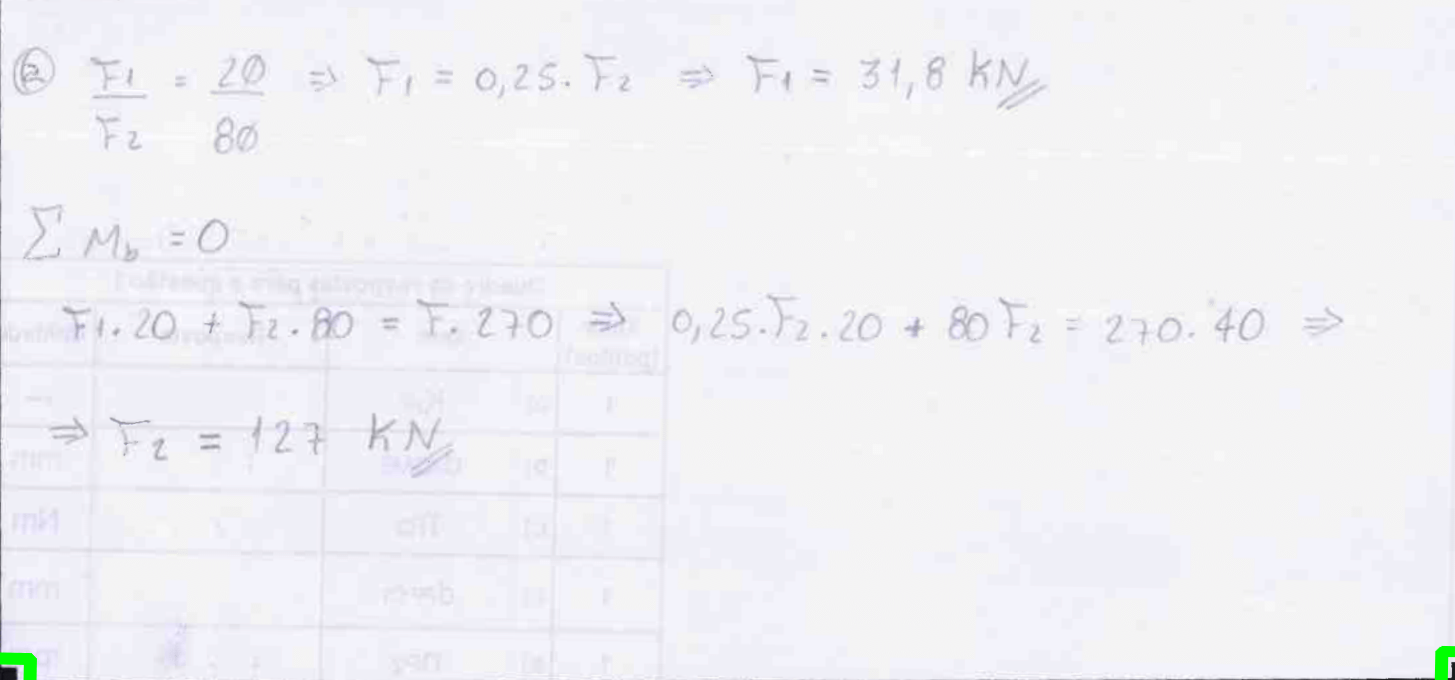 ⓐ F1/F2 = 20/80 ⇒ F1 = 0,25 . F2 ⇒ F1 = 31,8 KN
∑ Mb = 0
F1 . 20 + F2 . 80 = F . 270 ⇒ 0,25 . F2 . 20 + 80 F2 = 270 . 40 ⇒
⇒ F2 = 127 KN